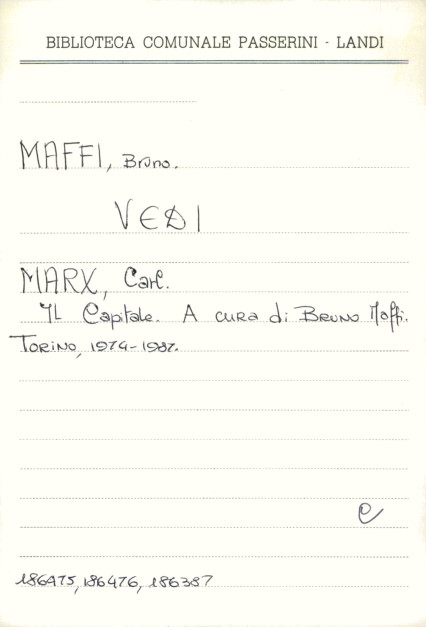 BIBLIOTECA COMUNALE PASSERINI - LANDI
MAFFI, Bruno.
VEDI
MARX, Carl.
Il Capitale. A cura di Bruno Maffi.
Torino, 1974-1987.
e
186475, 186476, 186387